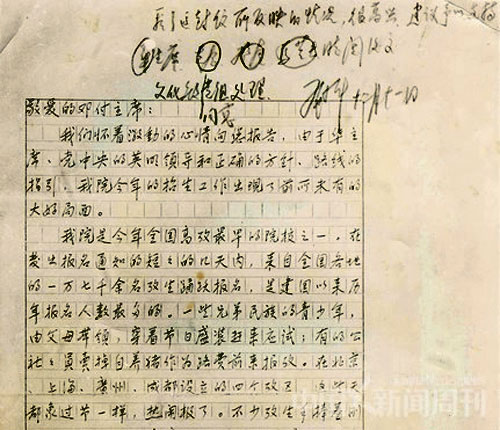 看了这封信所反映的情况，很高兴。建议予以支持
阅后交
文化部党组处理。
十二月十一日
敬爱的邓付主席：
我们怀着激动的心情向您报告，由于华主
席、党中央的英明领导和正确的方针、路线的
指引，我院今年的招生工作出现了前所未有的
大好局面。
我院是今年全国高考最早的院校之一。在
发出报名通知的短々的几天内，来自全国各地
的一万七千余名考生踊跃报名，是建国以来历
年报名人数最多的。一些兄弟民族的青少年，
由父母带领，穿着节日盛装赶来应试；有的公
社々员卖掉自养猪作为路费前来报考。在北京
、上海、广州、成都设立的四个考区，这些天
都象过节一样，热闹极了。不少考生手捧着刚
新闻周刊